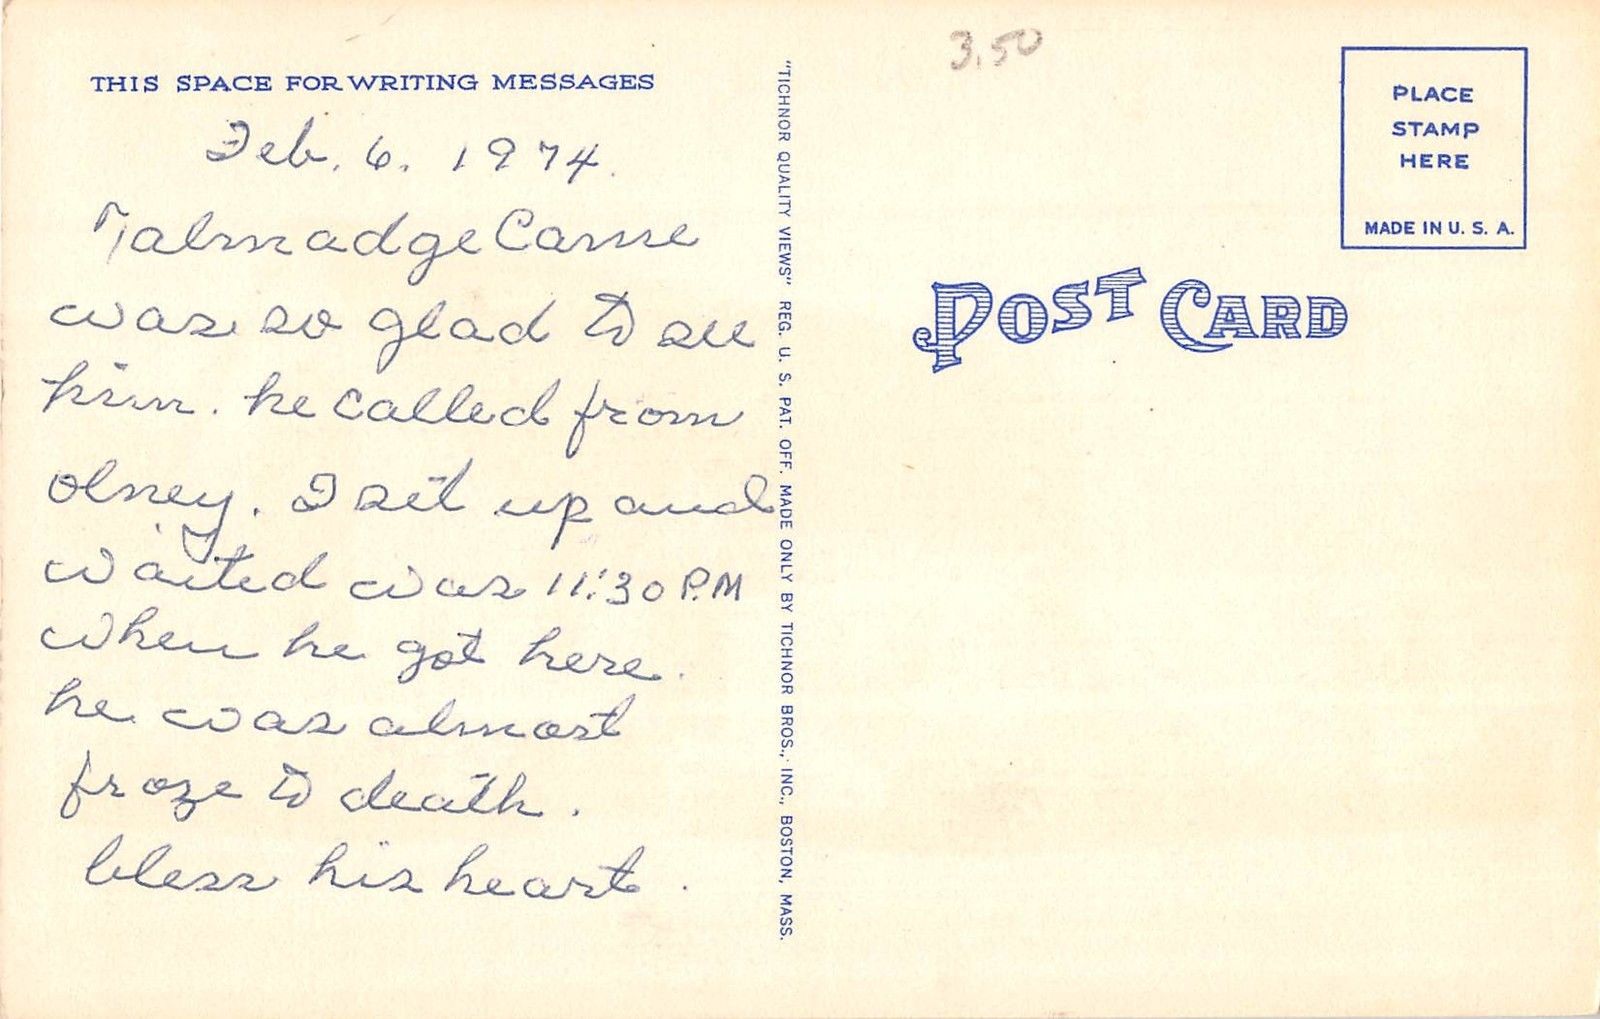 THIS SPACE FOR WRITING MESSAGES
Feb. 6. 1974.
Talmadge Came
was so glad to see
him. he called from
olney. I set up and
waited was 11:30 P.M
when he got here.
he was almost
froze to death.
bless his heart.
"TICHNOR QUALITY VIEWS" REG. U. S. PAT. OFF. MADE ONLY BY TICHNOR BROS., INC., BOSTON, MASS.
3.50
PLACE
STAMP
HERE
MADE IN U. S. A.
POST CARD